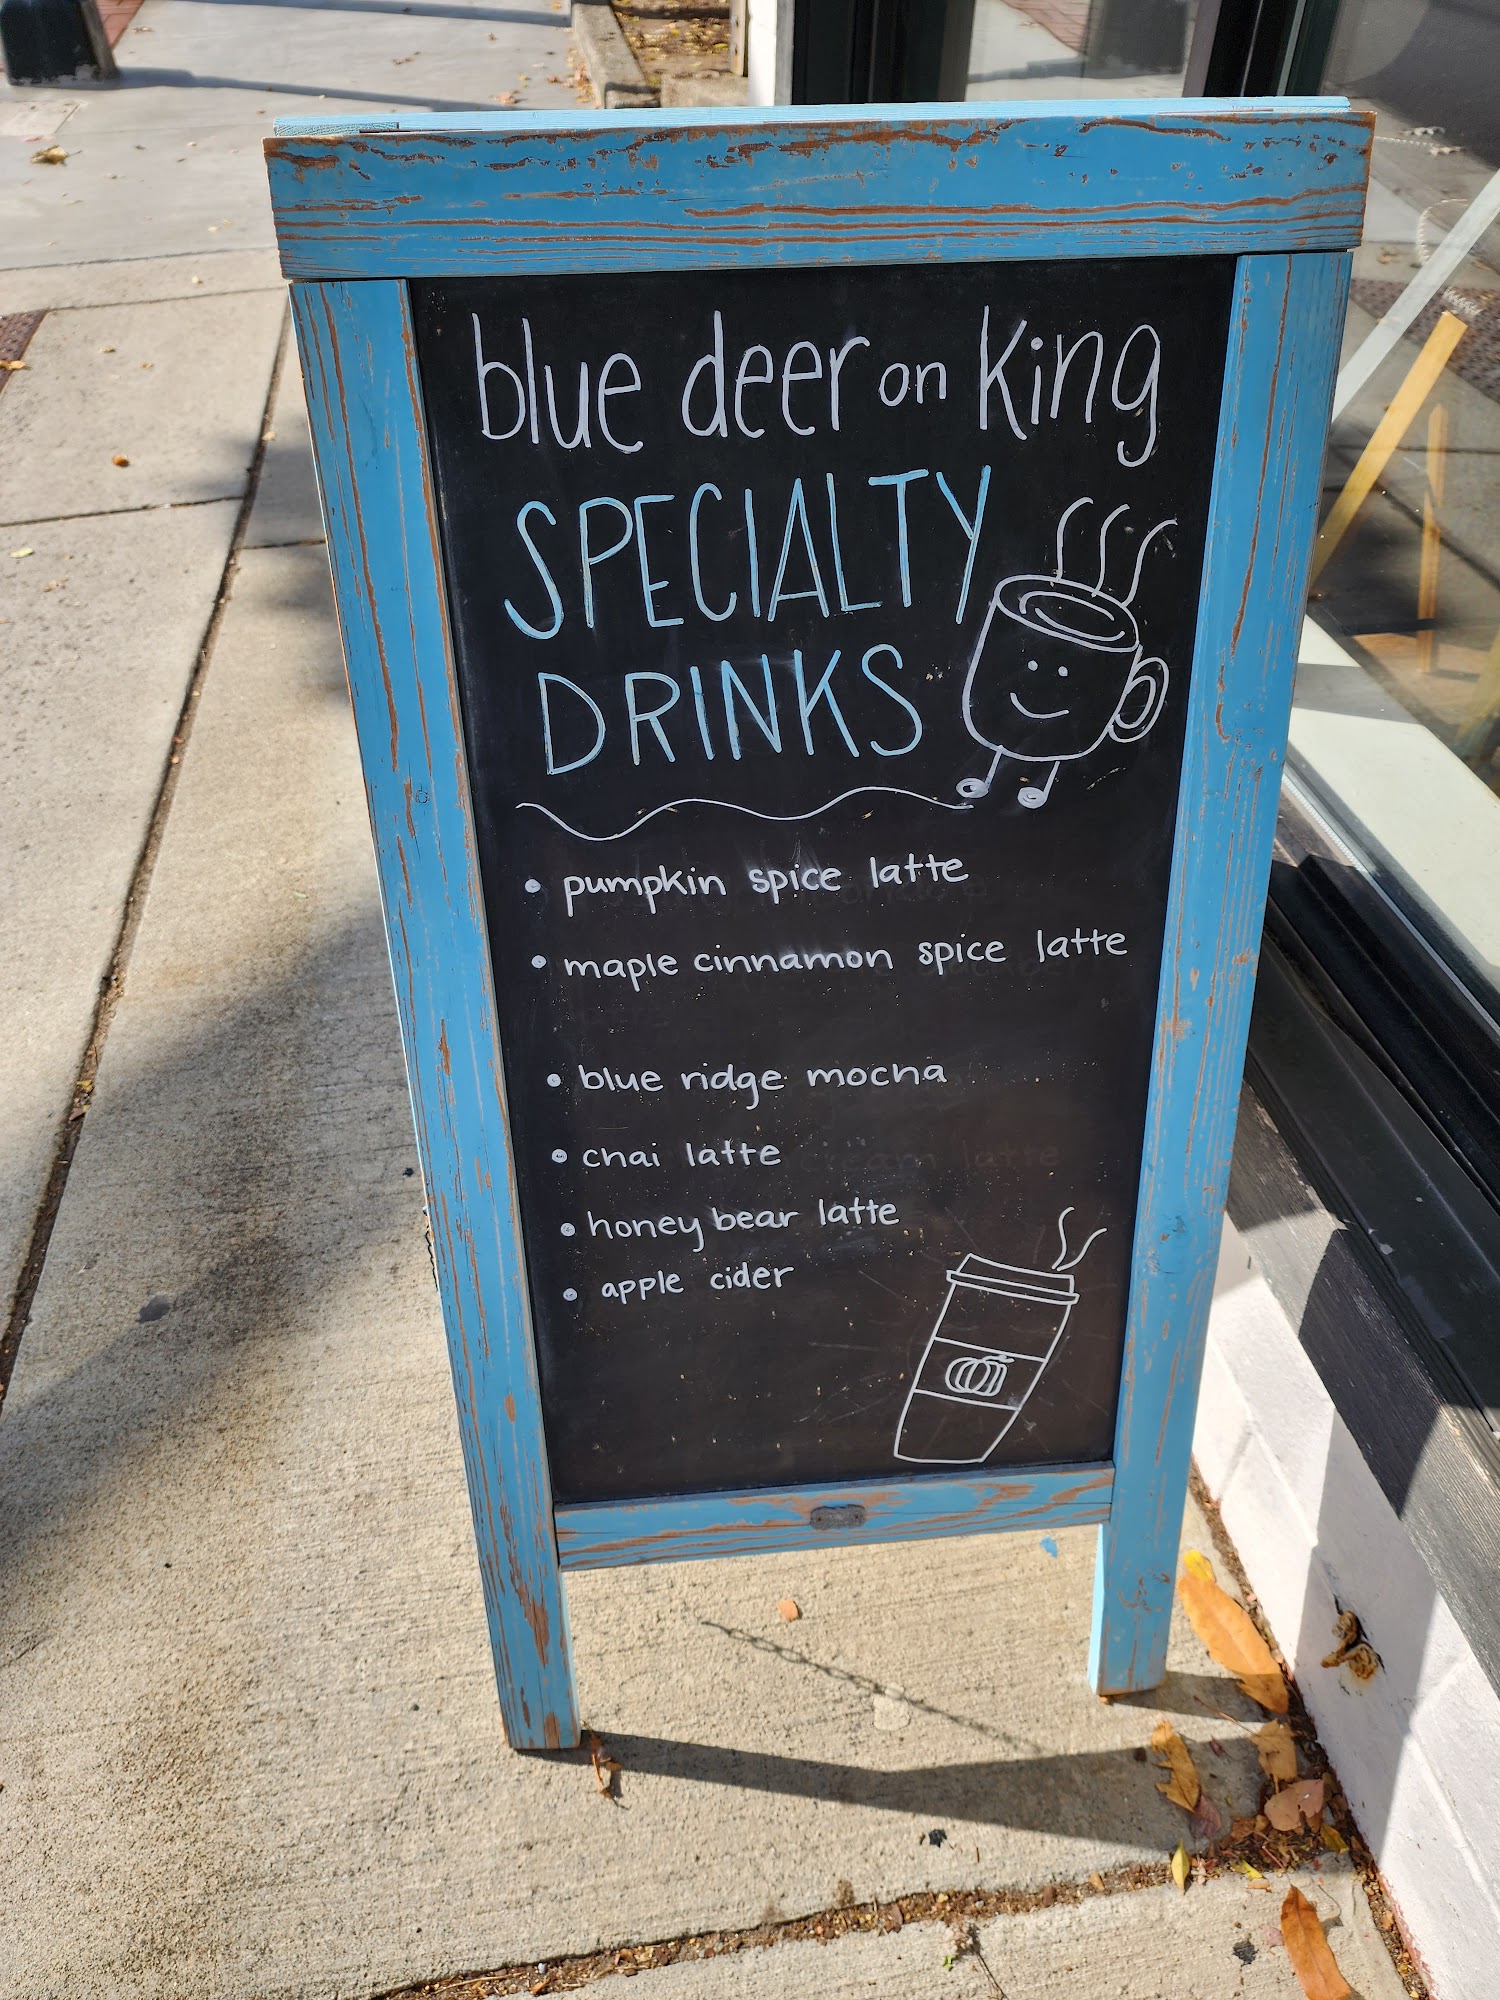 blue deer on King
SPECIALTY
DRINKS
• pumpkin spice latte
• maple cinnamon spice latte
• blue ridge mocha
• chai latte
• honey bear latte
• apple cider